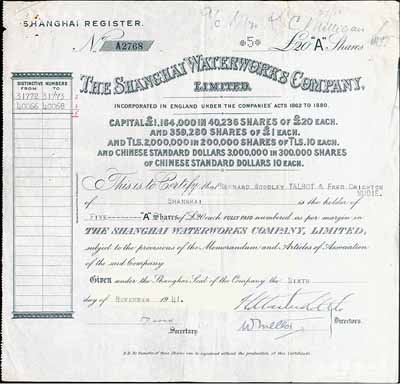 SHANGHAI REGISTER.
A/c John
No A2768
5
£20 "A" Shares
DISTINCTIVE NUMBERS
FROM TO
31772 31773
40066 40068
THE SHANGHAI WATERWORKS COMPANY,
LIMITED.
INCORPORATED IN ENGLAND UNDER THE COMPANIES' ACTS 1862 TO 1880.
CAPITAL £1,164,000 IN 40,236 SHARES OF £20 EACH.
AND 359,280 SHARES OF £1 EACH.
AND TLS. 2,000,000 IN 200,000 SHARES OF TLS. 10 EACH.
AND CHINESE STANDARD DOLLARS 3,000,000 IN 300,000 SHARES
OF CHINESE STANDARD DOLLARS 10 EACH.
This is to Certify that BERNARD GOODLEY TALBOT & FRED CRIGHTON
of SHANGHAI is the holder of
FIVE "A" Shares of £20 each FULLY PAID numbered as per margin in
THE SHANGHAI WATERWORKS COMPANY, LIMITED,
subject to the provisions of the Memorandum and Articles of Association
of the said Company
Given under the Shanghai Seal of the Company the SIXTH
day of NOVEMBER 1941.
Secretary
Directors.
N.B. No transfer of these Shares can be registered without the production of this Certificate.